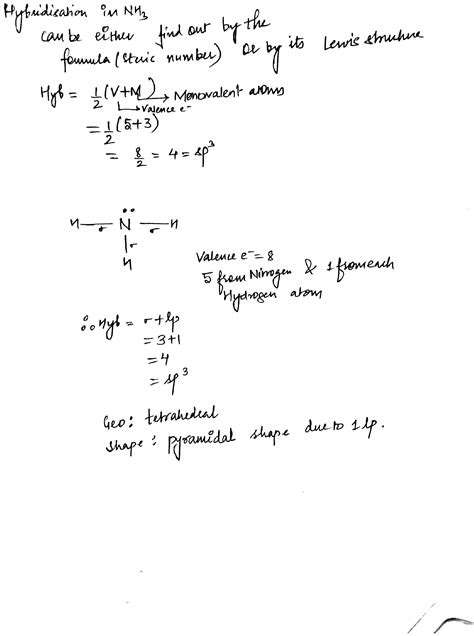 Hybridisation in NH3
can be either find out by the
formula (Steric number) Or by its Lewis structure
Hyb = 1/2 (V+M) → Monovalent atoms
→ Valence e-
= 1/2 (5+3)
= 8/2 = 4 = sp3
H — N̈ — H
σ σ
σ
H
Valence e- = 8
5 from Nitrogen & 1 from each
Hydrogen atom
∴ Hyb = σ + lp
= 3+1
= 4
= sp3
Geo: tetrahedral
shape: pyramidal shape due to 1 lp.